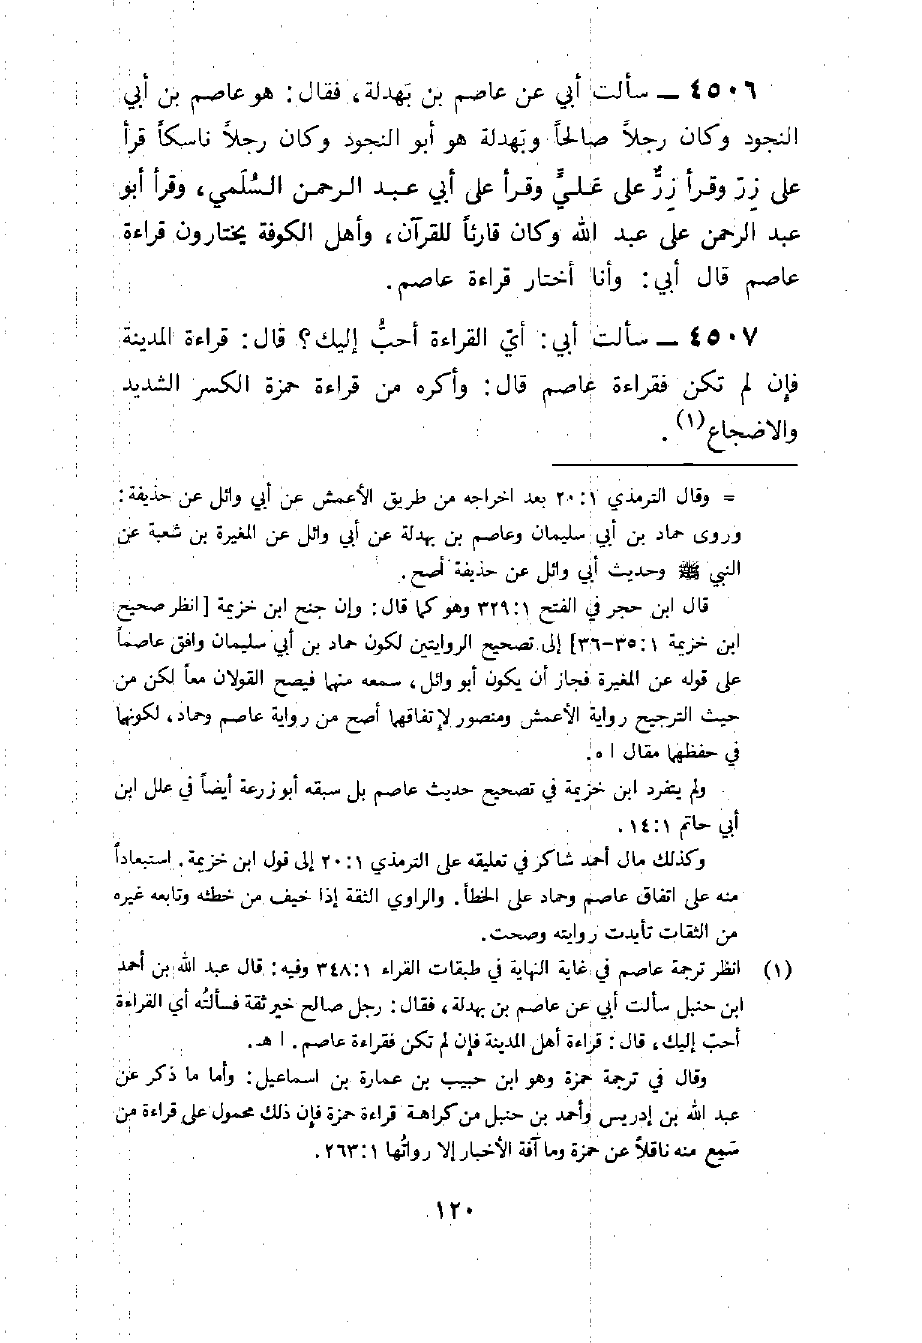 ٤٥٠٦ ـ سألت أبي عن عاصم بن بَهدلة، فقال: هو عاصم بن أبي
النجود وكان رجلاً صالحاً وبَهدلة هو أبو النجود وكان رجلاً ناسكاً قرأ
على زِرّ وقرأ زِرٌّ على عَليٍّ وقرأ على أبي عبد الرحمن السُلَمي، وقرأ أبو
عبد الرحمن على عبد الله وكان قارئاً للقرآن، وأهل الكوفة يختارون قراءة
عاصم قال أبي: وأنا أختار قراءة عاصم.
٤٥٠٧ ـ سألت أبي: أيّ القراءة أحبُّ إليك؟ قال: قراءة المدينة
فإن لم تكن فقراءة عاصم قال: وأكره من قراءة حمزة الكسر الشديد
والاضجاع(١).
= وقال الترمذي ٢٠:١ بعد اخراجه من طريق الأعمش عن أبي وائل عن حذيفة:
وروى حماد بن أبي سليمان وعاصم بن بهدلة عن أبي وائل عن المغيرة بن شعبة عن
النبي ﷺ وحديث أبي وائل عن حذيفة أصح.
قال ابن حجر في الفتح ٣٢٩:١ وهو كما قال: وإن جنح ابن خزيمة [انظر صحيح
ابن خزيمة ٣٥:١-٣٦] إلى تصحيح الروايتين لكون حماد بن أبي سليمان وافق عاصماً
على قوله عن المغيرة فجاز أن يكون أبو وائل، سمعه منهما فيصح القولان معاً لكن من
حيث الترجيح رواية الأعمش ومنصور لإتفاقهما أصح من رواية عاصم وحماد، لكونهما
في حفظهما مقال ا ه.
ولم يتفرد ابن خزيمة في تصحيح حديث عاصم بل سبقه أبو زرعة أيضاً في علل ابن
أبي حاتم ١٤:١.
وكذلك مال أحمد شاكر في تعليقه على الترمذي ٢٠:١ إلى قول ابن خزيمة. استبعاداً
منه على اتفاق عاصم وحماد على الخطأ. والراوي الثقة إذا خيف من خطئه وتابعه غيره
من الثقات تأيدت روايته وصحت.
(١) انظر ترجمة عاصم في غاية النهاية في طبقات القراء ٣٤٨:١ وفيه: قال عبد الله بن أحمد
ابن حنبل سألت أبي عن عاصم بن بهدلة، فقال: رجل صالح خير ثقة فسألتُه أي القراءة
أحبّ إليك، قال: قراءة أهل المدينة فإن لم تكن فقراءة عاصم. ا هـ.
وقال في ترجمة حمزة وهو ابن حبيب بن عمارة بن اسماعيل: وأما ما ذكر عن
عبد الله بن إدريس وأحمد بن حنبل من كراهة قراءة حمزة فإن ذلك محمول على قراءة من
سَمِع منه ناقلاً عن حمزة وما آفة الأخبار إلا رواتُها ٢٦٣:١.
١٢٠